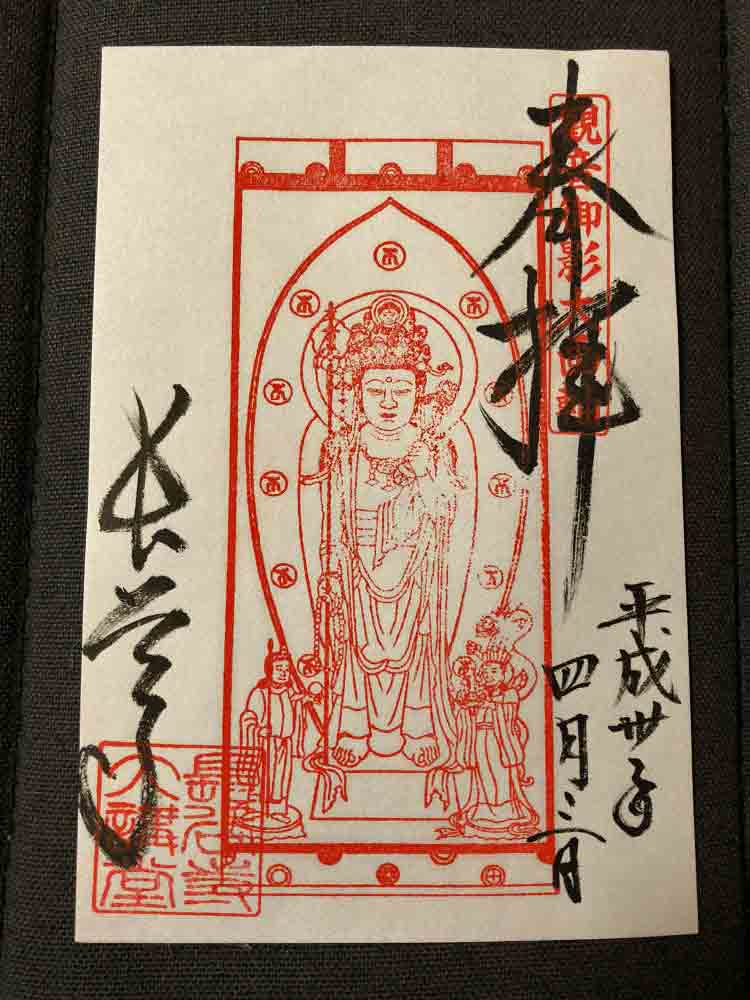 奉拝
観音御影大画軸
平成卅年
四月三日
長谷寺
大講堂